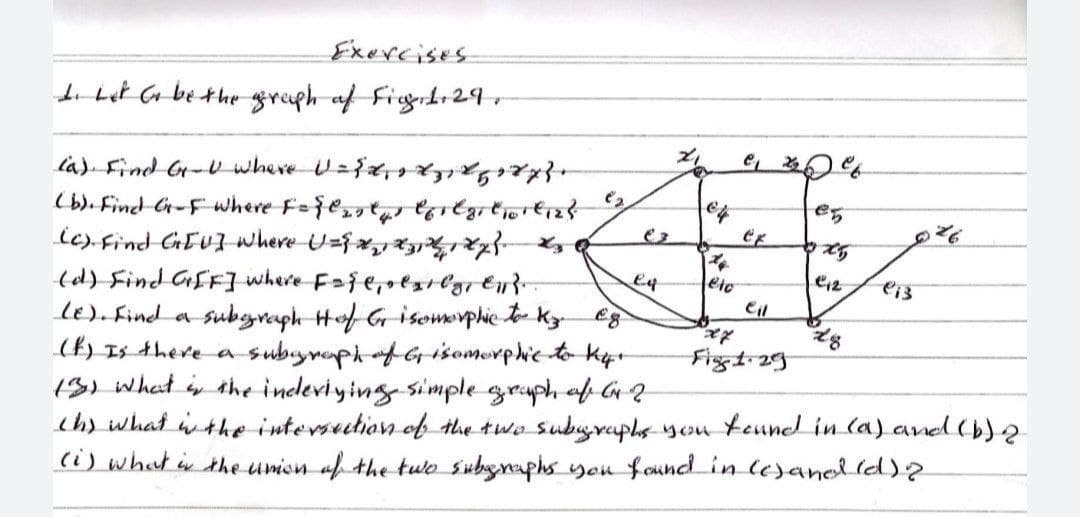 Exercises
1. Let G be the graph of Fig.1.29.
(a). Find G-U where U={x₁, x₃, x₅, x₇}.
(b). Find G-F where F={e₂, e₄, e₆, e₈, e₁₀, e₁₂}
(c). Find G[U] where U={x₂, x₃, x₄, x₇}.
(d) Find G[F] where F={e₁, e₃, e₈, e₁₁}.
(e). Find a subgraph H of G isomorphic to K₃.
(f) Is there a subgraph of G isomorphic to K₄.
(g) what is the inderlying simple graph of G?
(h) what is the intersection of the two subgraphs you found in (a) and (b)?
(i) what is the union of the two subgraphs you found in (c) and (d)?
x₁ e₁ x₂ e₆
e₂ e₄ e₅
x₃ e₃ e₇ x₅ x₆
x₄
e₉ e₁₀ e₁₂ e₁₃
e₈ e₁₁
x₇ x₈
Fig 1.29